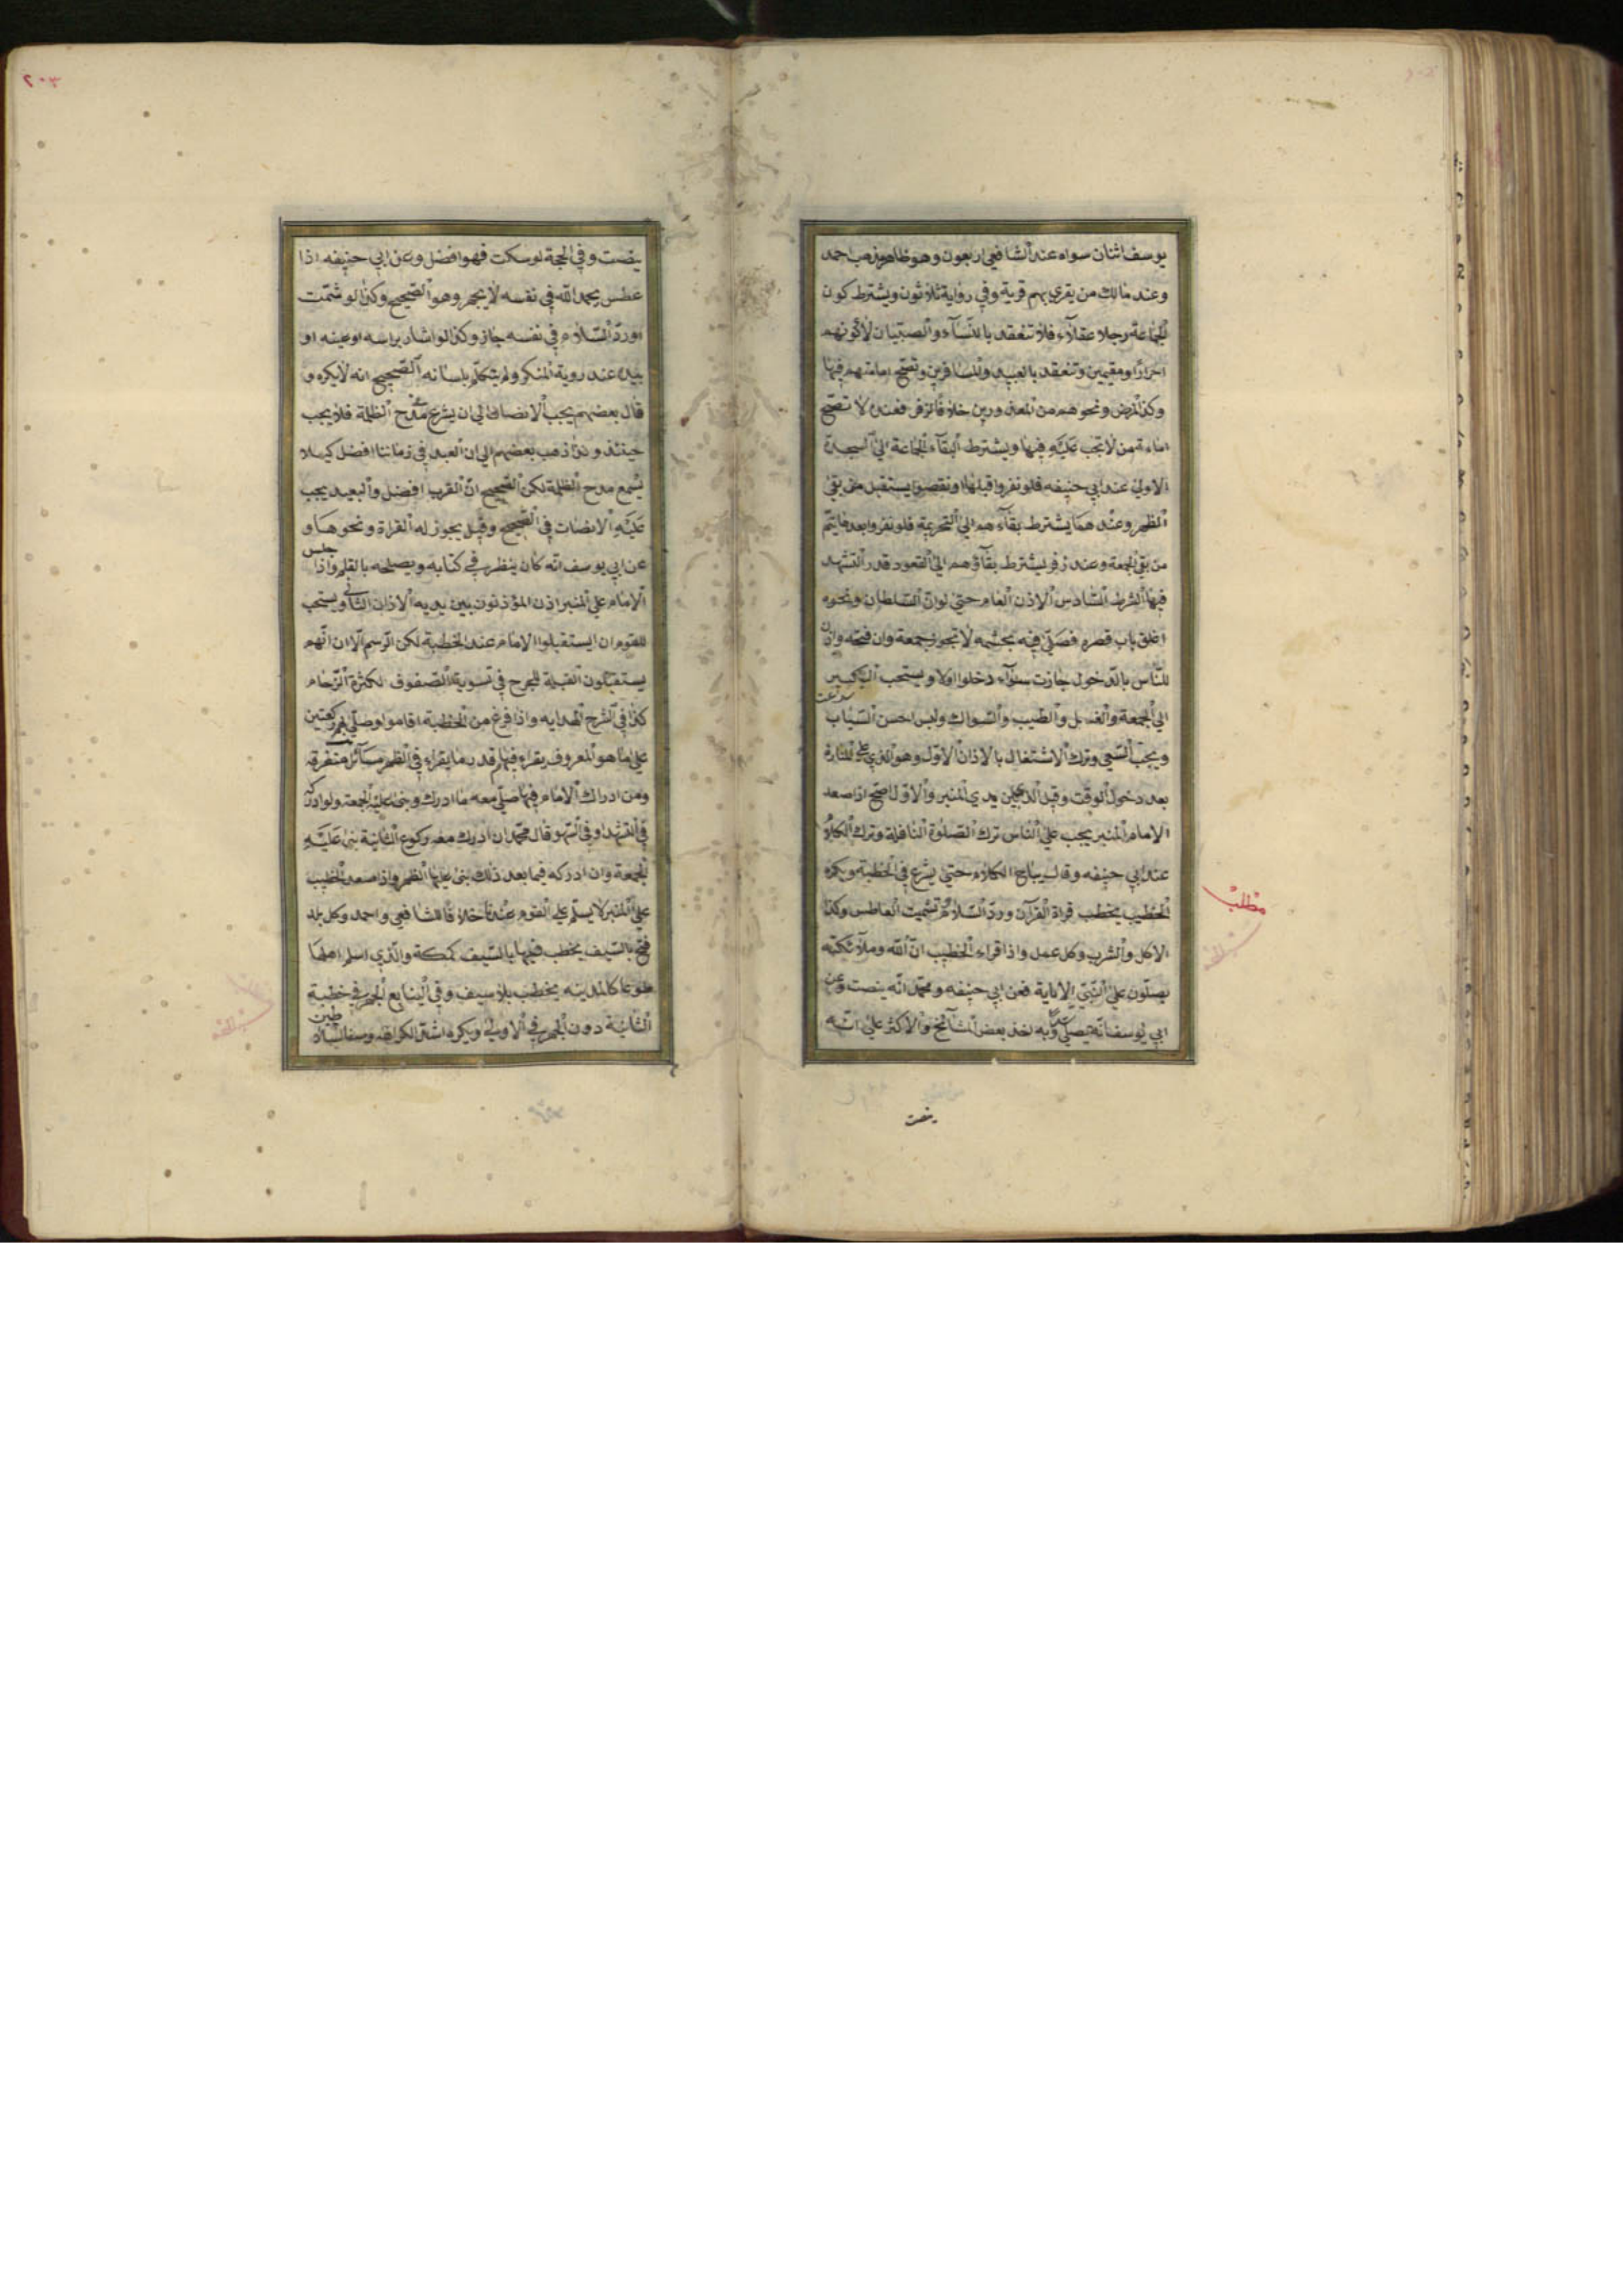 يوسف اثنان سواه عند الشافعي اربعون وهو ظاهر مذهب احمد
وعند مالك من يقري بهم قرية وفي رواية ثلاثون ويشترط كون
الجماعة رجلا عقلاء فلا تنعقد بالنساء والصبيان لا كونهم
احرارًا ومقيمين وتنعقد بالعبيد والمسافرين وتصح امامتهم فيها
وكذا المرضى ونحوهم من المعذورين خلافا لزفر فعنده لا تصح
امامة من لا تجب عليه فيها ويشترط البقاء الجماعة الى السجدة
الاولى عند ابي حنيفه فلو نفروا قبلها او نقصوا يستقبل من بقي
الظهر وعندهما يشترط بقاءهم الى التحريمة فلو نفروا بعدها يتم
من بقي الجمعة وعند زفر يشترط بقاؤهم الى القعود قدر التشهد
فيها الشرط السادس الاذن العام حتى لو ان السلطان ونحوه
اغلق باب قصره فصلى فيه بحشمه لا تجوز جمعة وان فتحه واذن
للناس بالدخول جازت سواء دخلوا اولا ويستحب التبكير
الى الجمعة والغسل والطيب والسواك ولبس احسن الثياب
ويجب السعي وترك الاشتغال بالاذان الاول وهو الذي على المنارة
بعد دخول الوقت وقيل الذي بين يدي المنبر والاول اصح اذا صعد
الامام المنبر يجب على الناس ترك الصلوة النافلة وترك الكلام
عند ابي حنيفه وقالا يباح الكلام حتى يشرع في الخطبة ويكره
الخطيب يخطب قراة القرآن ورد السلام تشميت العاطس وكذا
الاكل والشرب وكل عمل واذا قراء الخطيب ان الله وملآئكته
يصلون على النبي الاية فعن ابي حنيفه ومحمد انه ينصت وعن
ابي يوسف انه يصلي وبه اخذ بعض المشآئخ والاكثر على انه
مطلب
ينصت
٢٠٣
ينصت وفي الحجة لو سكت فهو افضل وعن ابي حنيفه اذا
عطس يحمد الله في نفسه لا يجهر وهو الصحيح وكذا لو شمت
او رد السلام في نفسه جاز وكذا لو اشار براسه او عينه او
بيده عند روية المنكر ولم يتكلم بلسانه الصحيح انه لا يكره و
قال بعضهم يجب الانصات الى ان يشرع في مدح الظلمة فلا يجب
حينئذ و ذهب بعضهم الى ان البعد في زماننا افضل كيلا
يسمع مدح الظلمة لكن الصحيح ان القرب افضل والبعيد يجب
عليه الانصات في الصحيح وقيل يجوز له القراة ونحوها و
عن ابي يوسف انه كان ينظر في كتابه ويصلحه بالقلم واذا جلس
الامام على المنبر اذن المؤذنون بين يديه الاذان الثاني ويستحب
للقوم ان ايستقبلوا الامام عند الخطبة لكن الرسم الآن انهم
يستقبلون القبلة للحرج في تسوية الصفوف لكثرة الزحام
كذا في الشرح الهدايه واذا فرغ من الخطبة اقاموا وصلى بهم ركعتين
على ما هو المعروف يقراء فيهما قدر ما يقراء في الظهر مسآئل متفرقة
ومن ادراك الامام فيها صلى معه ما ادرك وبنى عليه الجمعة ولو ادركه
في التشهد او في السهو وقال محمد ان ادرك معه ركوع الثانية بنى عليه
الجمعة وان ادركه فيما بعد ذلك بنى عليها الظهر واذا صعد الخطيب
على المنبر لا يسلم على القوم عندنا خلافا للشافعي واحمد وكل بلد
فتح بالسيف يخطب فيها بالسيف كمكة والذي اسلم اهلها
طوعا كالمدينه يخطب بلا سيف وفي الينابيع الجهر في خطبة
الثانية دون الجهر في الاولى ويكره اشد الكراهة وصف السلاطين